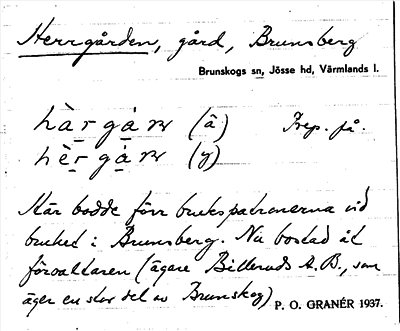 Herrgården, gård, Brunsberg
Brunskogs sn, Jösse hd, Värmlands l.
(ä) Prep. på.
(y)
Här bodde förr brukspatronerna vid
bruket i Brunsberg. Nu bostad åt
förvaltaren (ägare Billeruds A.B., som
äger en stor del av Brunskog)
P. O. GRANÉR 1937.